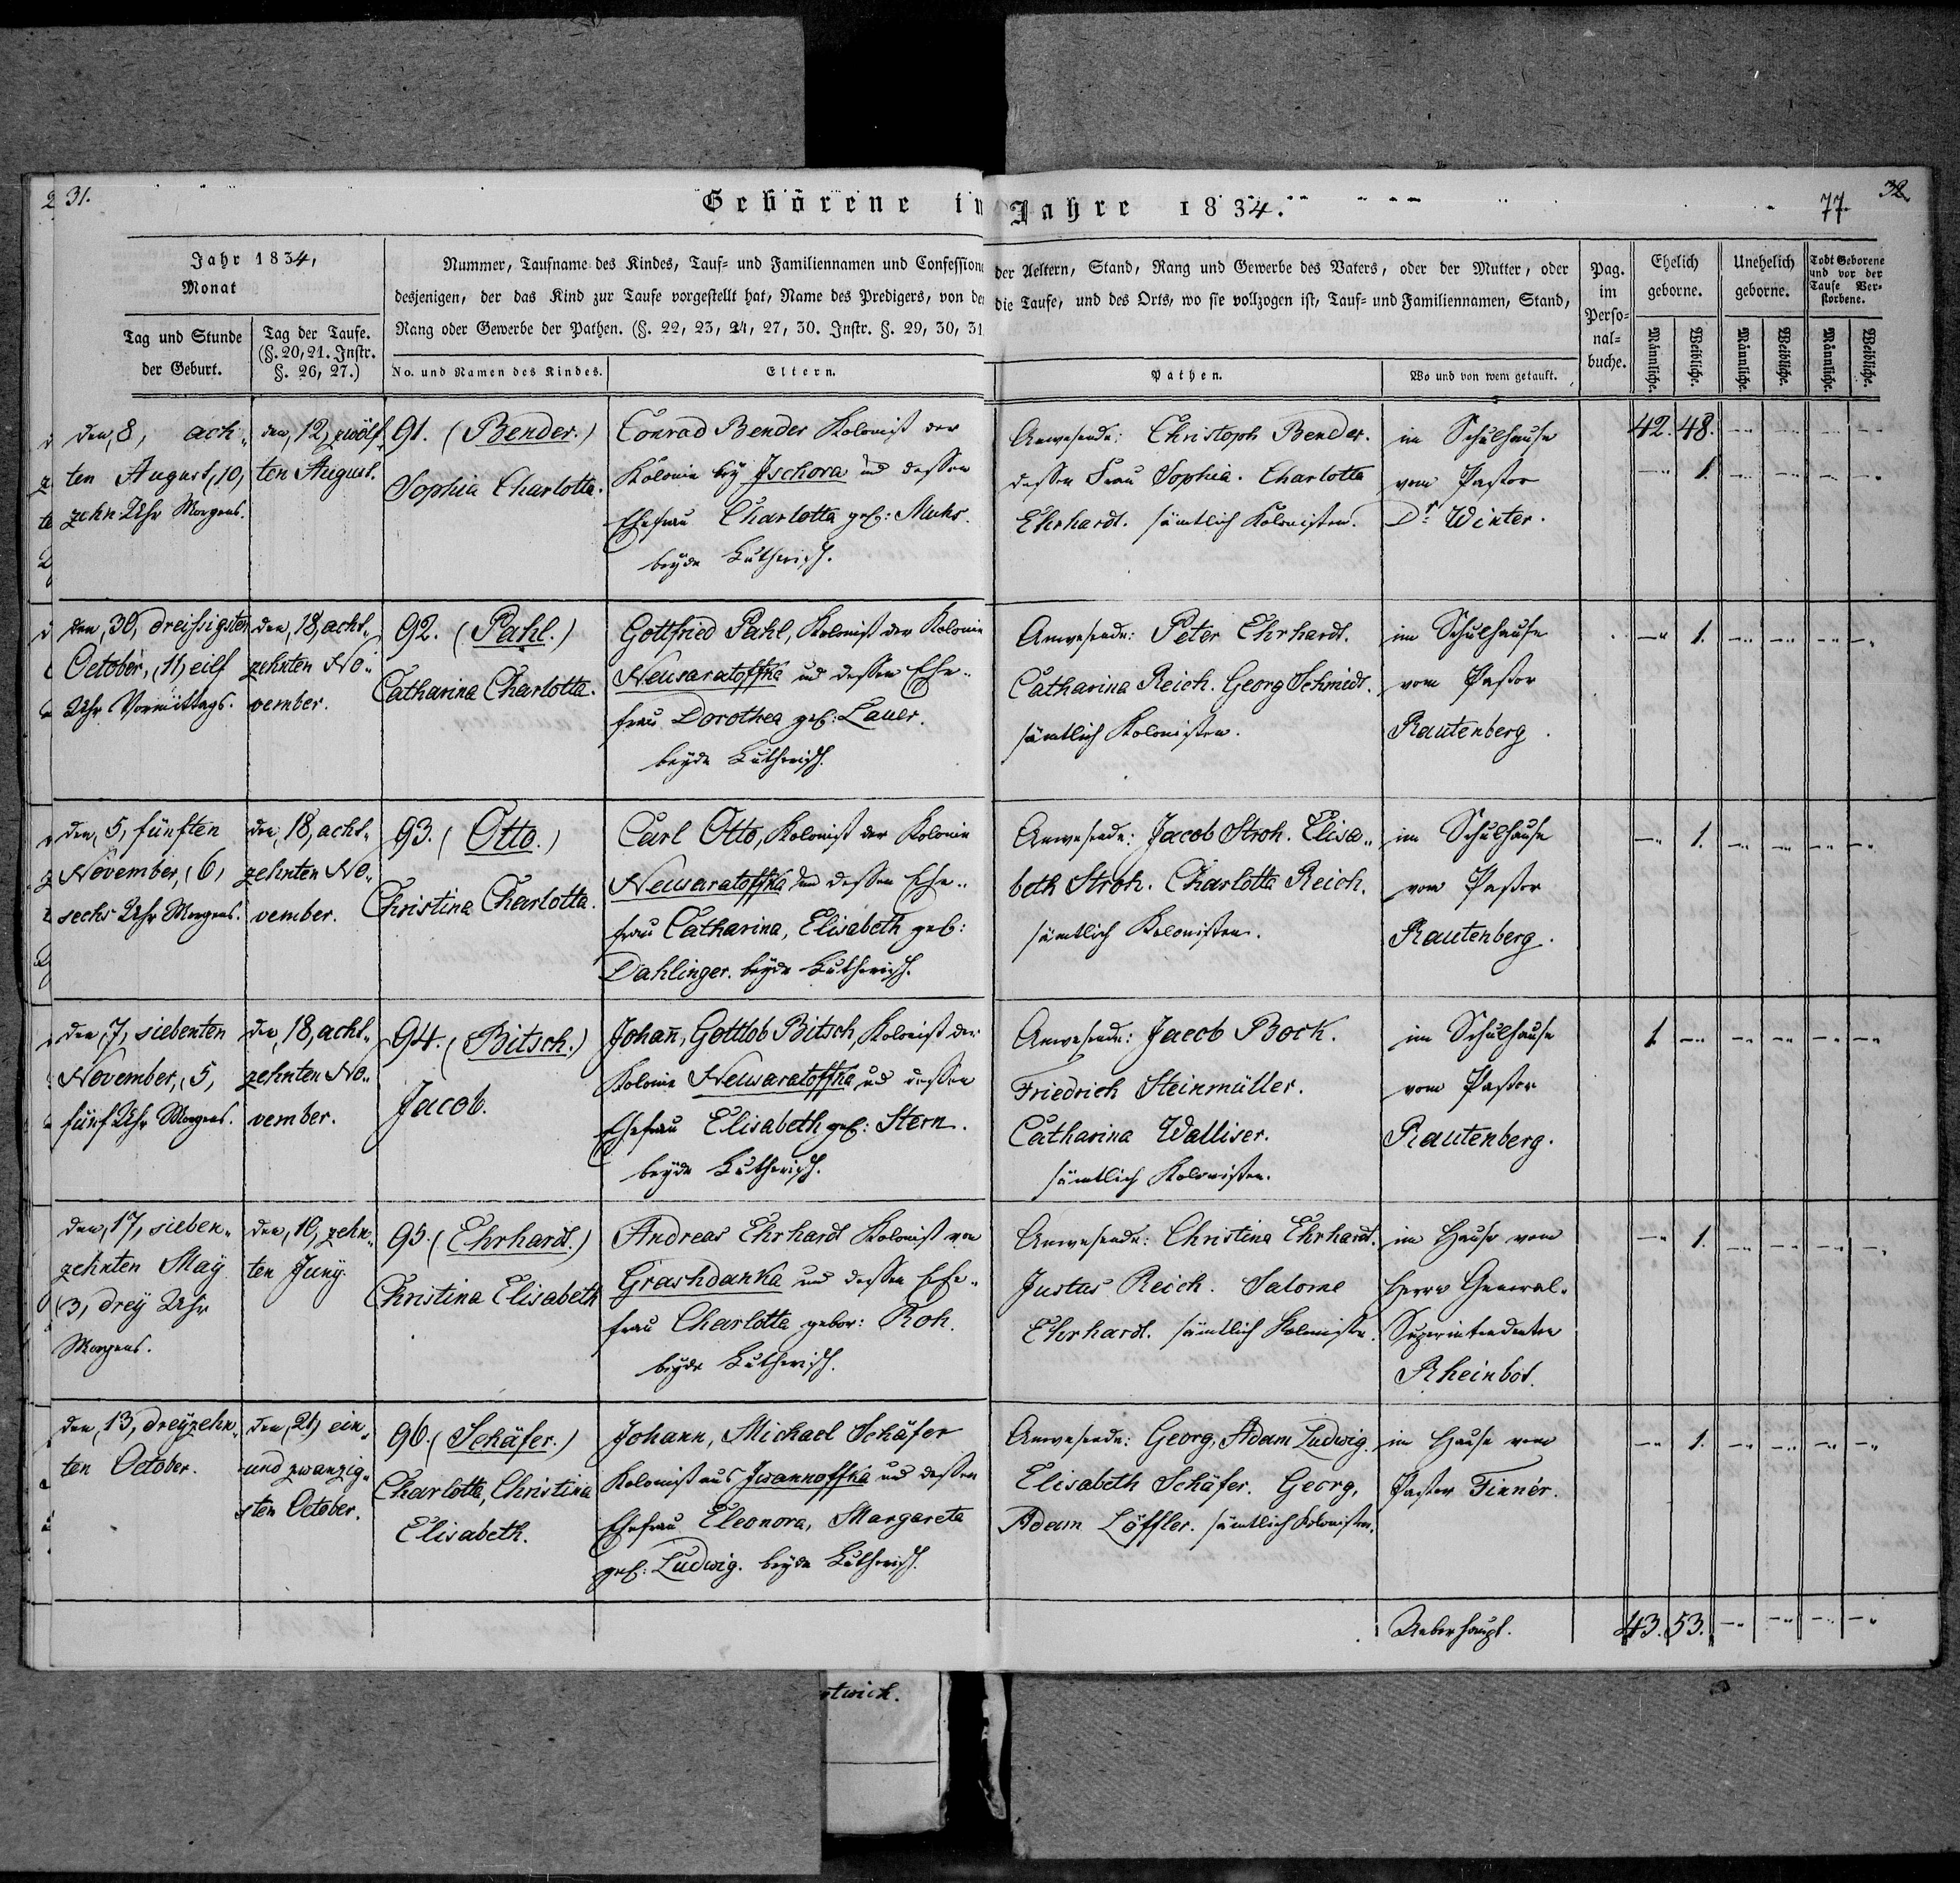 31.
Geborene im Jahre 1834.
77.
32
Jahr 1834,
Monat
Tag und Stunde
der Geburt.
Tag der Taufe.
(§. 20, 21. Instr.
§. 26, 27.)
Nummer, Taufname des Kindes, Tauf- und Familiennamen und Confession der Aeltern, Stand, Rang und Gewerbe des Vaters, oder der Mutter, oder
desjenigen, der das Kind zur Taufe vorgestellt hat, Name des Predigers, von dem die Taufe, und des Orts, wo sie vollzogen ist, Tauf- und Familiennamen, Stand,
Rang oder Gewerbe der Pathen. (§. 22, 23, 24, 27, 30. Instr. §. 29, 30, 31
No. und Namen des Kindes.
Eltern.
Pathen.
Wo und von wem getauft.
Pag.
im
Perso-
nal-
buche.
Ehelich
geborne.
Unehelich
geborne.
Todt Geborene
und vor der
Taufe Ver-
storbene.
Männliche.
Weibliche.
Männliche.
Weibliche.
Männliche.
Weibliche.
den, 8, ach-
ten August, 10,
zehn Uhr Morgens.
den, 12, zwölf
ten August.
91. (Bender.)
Sophia Charlotta.
Conrad Bender Kolonist der
Kolonie bey Ischora und dessen
Ehefrau Charlotta geb: Muhs.
beyde Lutherisch.
Anwesende: Christoph Bender.
dessen Frau Sophia. Charlotta
Ehrhardt. sämtlich Kolonisten.
im Schulhause
vom Pastor
Dr. Winter.
42. 48.
1.
den, 30, dreissigsten
October, (11, eilf
Uhr Vormittags.
den, 18, acht-
zehnten No-
vember.
92. (Pahl.)
Catharina Charlotta.
Gottfried Pahl, Kolonist der Kolonie
Neusaratoffka und dessen Ehe-
frau Dorothea geb: Lauer.
beyde Lutherisch.
Anwesende: Peter Ehrhardt.
Catharina Reich. Georg Schmidt.
sämtlich Kolonisten.
im Schulhause
vom Pastor
Rautenberg.
1.
den, 5, fünften
November, (6,
sechs Uhr Morgens.
den, 18, acht-
zehnten No-
vember.
93. (Otto.)
Christina Charlotta.
Carl Otto, Kolonist der Kolonie
Neusaratoffka und dessen Ehe-
frau Catharina, Elisabeth geb:
Dahlinger. beyde Lutherisch.
Anwesende: Jacob Stroh. Elisa-
beth Stroh. Charlotta Reich.
sämtlich Kolonisten.
im Schulhause
vom Pastor
Rautenberg.
1.
den, 7, siebenten
November, (5,
fünf Uhr Morgens.
den, 18, acht-
zehnten No-
vember.
94. (Bitsch.)
Jacob.
Johann, Gottlob Bitsch, Kolonist der
Kolonie Neusaratoffka und dessen
Ehefrau Elisabeth geb: Stern.
beyde Lutherisch.
Anwesende: Jacob Bock.
Friedrich Steinmüller.
Catharina Walliser.
sämtlich Kolonisten.
im Schulhause
vom Pastor
Rautenberg.
1
den, 17, sieben-
zehnten May
(3, drey Uhr
Morgens.
den, 10, zehn-
ten Juny.
95. (Ehrhardt.)
Christina Elisabeth
Andreas Ehrhardt Kolonist von
Grashdanka und dessen Ehe-
frau Charlotta gebor: Roh.
beyde Lutherisch.
Anwesende: Christina Ehrhardt.
Justus Reich. Salome
Ehrhardt. sämtlich Koloniste.
im Hause vom
Herrn General-
Superintendenten
Rheinbot.
1.
den, 13, dreyzehn-
ten October.
den, 21, ein-
und zwanzig-
sten October.
96. (Schäfer.)
Charlotta, Christina
Elisabeth.
Johann, Michael Schäfer
Kolonist aus Iwannoffka und dessen
Ehefrau Eleonora, Margareta
geb: Ludwig. beyde Lutherisch.
Anwesende: Georg, Adam Ludwig.
Elisabeth Schäfer. Georg,
Adam Löffler. sämtlich Kolonisten.
im Hause vom
Pastor Finnér.
1.
Ueberhaupt.
43. 53.